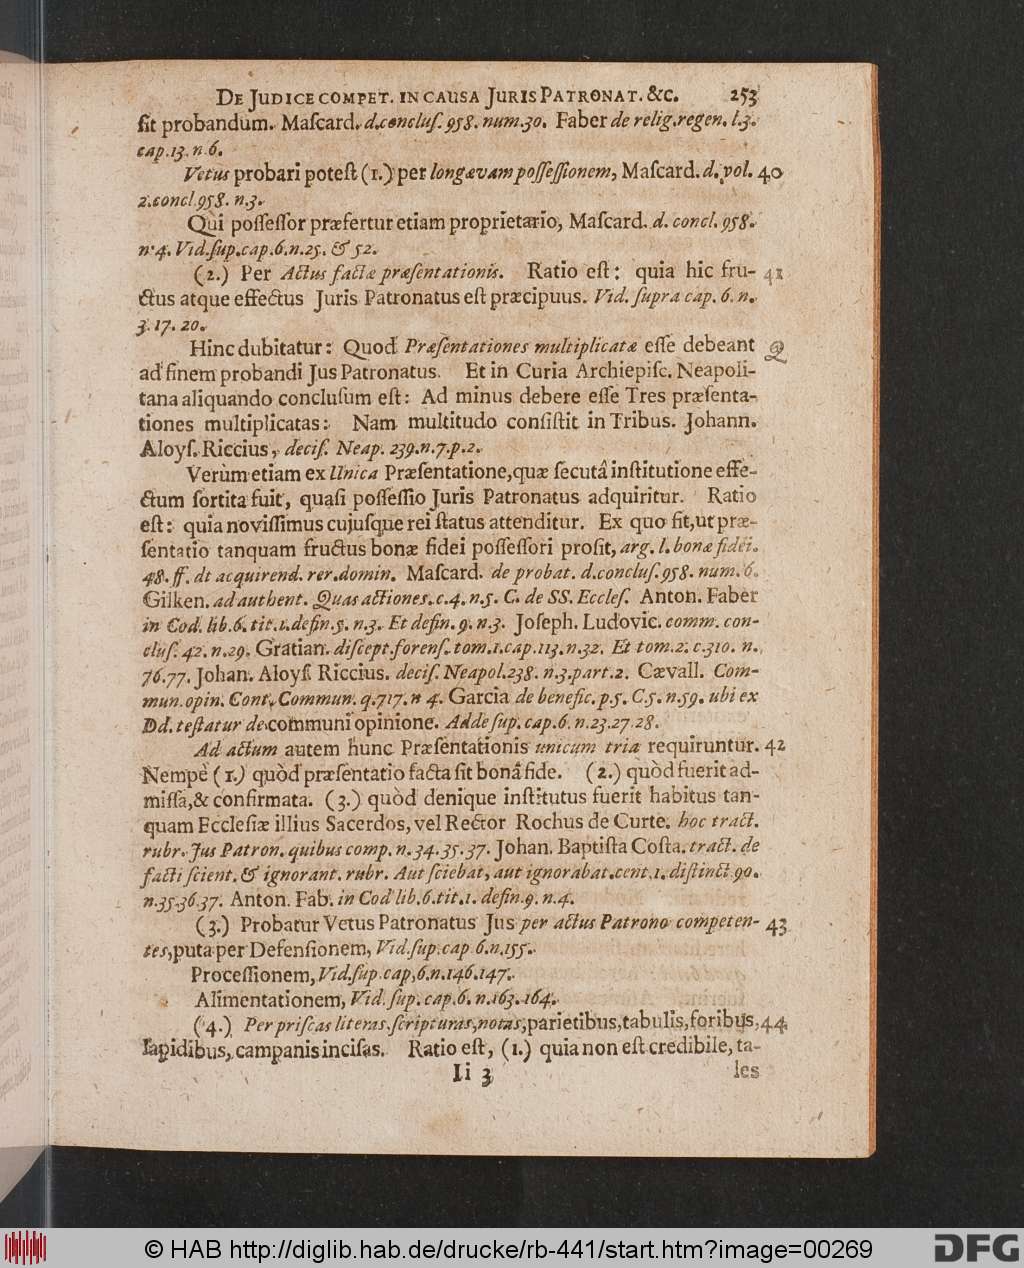 DE JUDICE COMPET. IN CAUSA JURIS PATRONAT. &C. 253
ſit probandum. Maſcard. d. concluſ. 958. num. 30. Faber de relig. regen. l. 3.
cap. 13. n. 6.
Vetus probari poteſt (1.) per longævam poſſeſſionem, Maſcard. d. vol. 40
2. concl. 958. n. 3.
Qui poſſeſſor præfertur etiam proprietario, Maſcard. d. concl. 958.
n. 4. Vid. ſup. cap. 6. n. 25. & 52.
(2.) Per Actus factæ præſentationis. Ratio eſt: quia hic fru- 41
ctus atque effectus Juris Patronatus eſt præcipuus. Vid. ſupra cap. 6. n.
3. 17. 20.
Hinc dubitatur: Quod Præſentationes multiplicatæ eſſe debeant Q
ad finem probandi Jus Patronatus. Et in Curia Archiepiſc. Neapoli-
tana aliquando concluſum eſt: Ad minus debere eſſe Tres præſenta-
tiones multiplicatas: Nam multitudo conſiſtit in Tribus. Johann.
Aloyſ. Riccius, deciſ. Neap. 239. n. 7. p. 2.
Verùm etiam ex Unica Præſentatione, quæ ſecutâ inſtitutione effe-
ctum ſortita fuit, quaſi poſſeſſio Juris Patronatus adquiritur. Ratio
eſt: quia noviſſimus cujuſque rei ſtatus attenditur. Ex quo fit, ut præ-
ſentatio tanquam fructus bonæ fidei poſſeſſori proſit, arg. l. bonæ fidei.
48. ff. dt acquirend. rer. domin. Maſcard. de probat. d. concluſ. 958. num. 6.
Gilken. ad authent. Quas actiones. c. 4. n. 5. C. de SS. Eccleſ. Anton. Faber
in Cod. lib. 6. tit. 1. defin. 5. n. 3. Et defin. 9. n. 3. Joſeph. Ludovic. comm. con-
cluſ. 42. n. 29. Gratian. diſcept. forenſ. tom. 1. cap. 113. n. 32. Et tom. 2. c. 310. n.
76. 77. Johan. Aloyſ. Riccius. deciſ. Neapol. 238. n. 3. part. 2. Cævall. Com-
mun. opin. Cont. Commun. q. 717. n 4. Garcia de benefic. p. 5. C. 5. n. 59. ubi ex
Dd. teſtatur de communi opinione. Adde ſup. cap. 6. n. 23. 27. 28.
Ad actum autem hunc Præſentationis unicum tria requiruntur. 42
Nempè (1.) quòd præſentatio facta ſit bonâ fide. (2.) quòd fuerit ad-
miſſa, & confirmata. (3.) quòd denique inſtitutus fuerit habitus tan-
quam Eccleſiæ illius Sacerdos, vel Rector Rochus de Curte. hoc tract.
rubr. Jus Patron. quibus comp. n. 34. 35. 37. Johan. Baptiſta Coſta. tract. de
facti ſcient. & ignorant. rubr. Aut ſciebat, aut ignorabat. cent. 1. diſtinct. 90.
n. 35. 36. 37. Anton. Fab. in Cod lib. 6. tit. 1. defin. 9. n. 4.
(3.) Probatur Vetus Patronatus Jus per actus Patrono competen- 43
tes, puta per Defenſionem, Vid. ſup. cap 6. n. 155.
Proceſſionem, Vid. ſup. cap, 6. n. 146. 147.
Alimentationem, Vid. ſup. cap. 6. n. 163. 164.
(4.) Per priſcas literas, ſcripturas, notas, parietibus, tabulis, foribus, 44
lapidibus, campanis inciſas. Ratio eſt, (1.) quia non eſt credibile, ta-
Ii 3 les
© HAB http://diglib.hab.de/drucke/rb-441/start.htm?image=00269
DFG